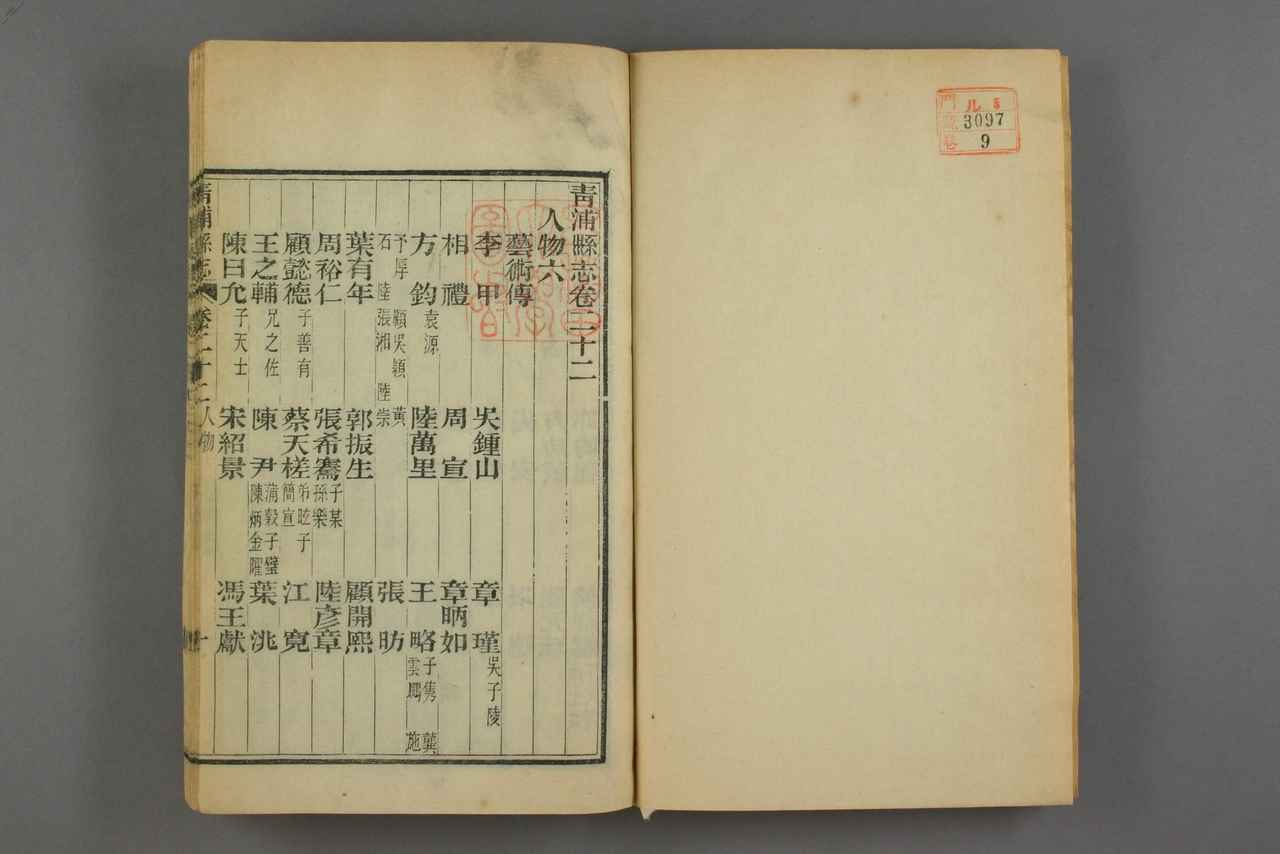 門 ル 5
號 3097
卷 9
青浦縣志卷二十二
人物六
藝術傳
李甲 吳鍾山 章瑾 吳子陵
相禮 周宣 章昞如
方鈞 袁源 陸萬里 王略 子雋 龔 雲鳳 施
予厚 顧吳穎 黃 石 陸張湘 陸崇 張昉
葉有年 郭振生 顧開熙
周裕仁 張希騫 子某 孫樂 陸彥章
顧懿德 子善有 蔡天槎 弟昡子 簡宣 江寬
王之輔 兄之佐 陳尹 蒲穀子璧 陳炳金曜 葉洮
陳曰允 子天士 宋紹景 馮王獻
青浦縣志 卷二十二 人物